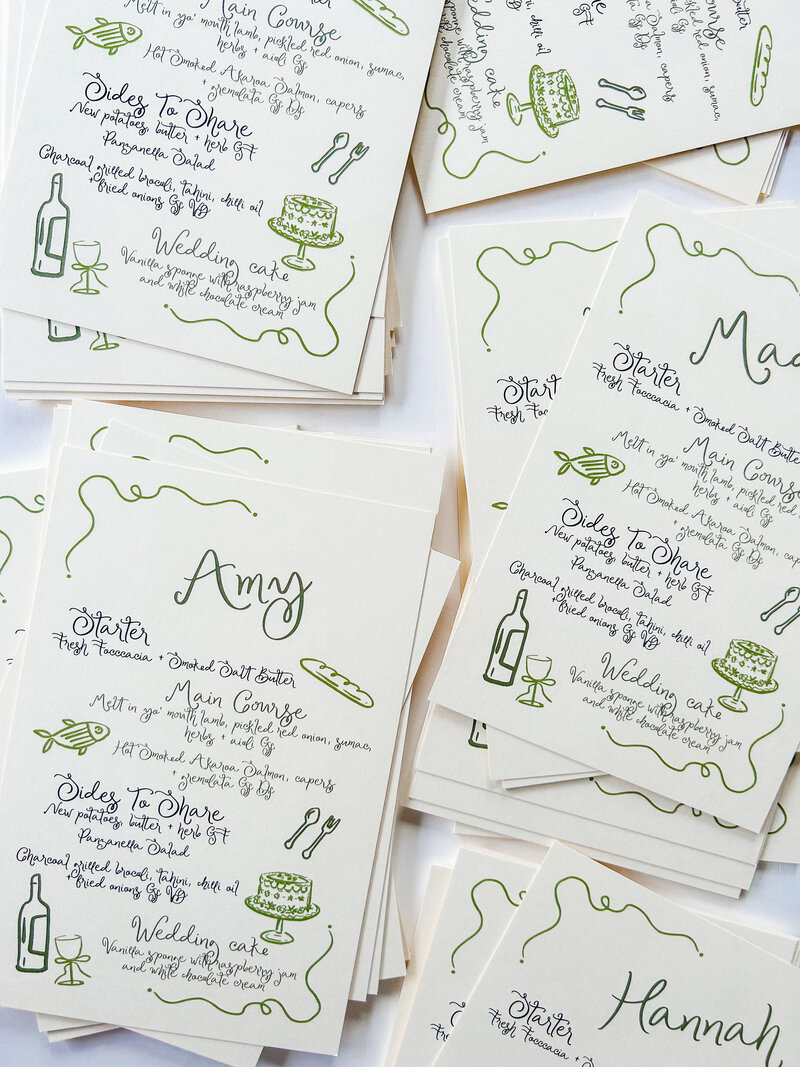 Main Course
Melt in yo' mouth lamb, pickled red onion, sumac,
herbs + aioli Gf
Hot Smoked Akaroa Salmon, capers
+ gremolata Gf Df
Sides To Share
New potatoes, butter + herb GF
Panzanella Salad
Charcoal grilled brocoli, tahini, chilli oil
+fried onions Gf VG
Wedding cake
Vanilla sponge with raspberry jam
and white chocolate cream
Course
red onion, sumac,
Salmon, capers
chilli oil
Wedding cake
sponge with raspberry jam
chocolate cream
Start
Fresh Foc
Maa
Starter
Fresh Focccacia + Smoked Salt Butter
Main Course
Melt in yo' mouth lamb, pickled red
herbs + aioli Gf
Hot Smoked Akaroa Salmon, capers
+ gremolata Gf Df
Sides To Share
New potatoes, butter + herb GF
Panzanella Salad
Charcoal grilled brocoli, tahini, chilli oil
+fried onions Gf VG
Wedding cake
Vanilla sponge with raspberry jam
and white chocolate cream
Amy
Starter
Fresh Focccacia + Smoked Salt Butter
Main Course
Melt in yo' mouth lamb, pickled red onion, sumac,
herbs + aioli Gf
Hot Smoked Akaroa Salmon, capers
+ gremolata Gf Df
Sides To Share
New potatoes, butter + herb GF
Panzanella Salad
Charcoal grilled brocoli, tahini, chilli oil
+fried onions Gf VG
Wedding cake
Vanilla sponge with raspberry jam
and white chocolate cream
Hannah
Starter
Fresh Focccacia +